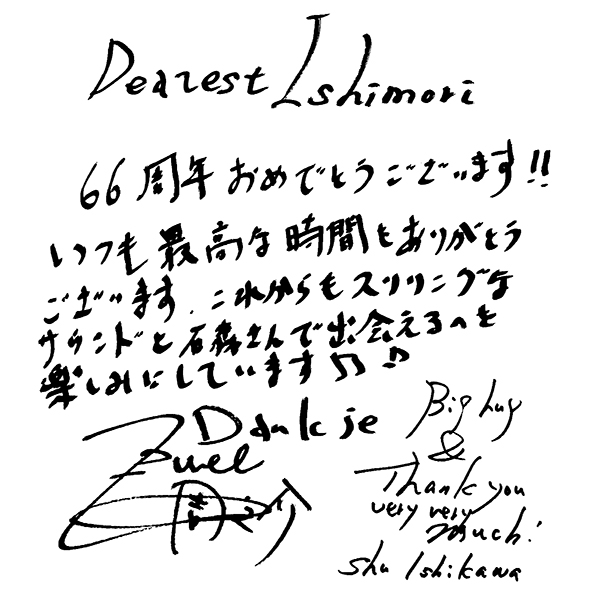 Dearest Ishimori
66周年おめでとうございます!!
いつも最高な時間をありがとう
ございます.これからもスリリングな
サウンドと石森さんで出会えるのを
楽しみにしています♫♪
Dank je
Big hug
&
Thank you
very very
much!
Shu Ishikawa